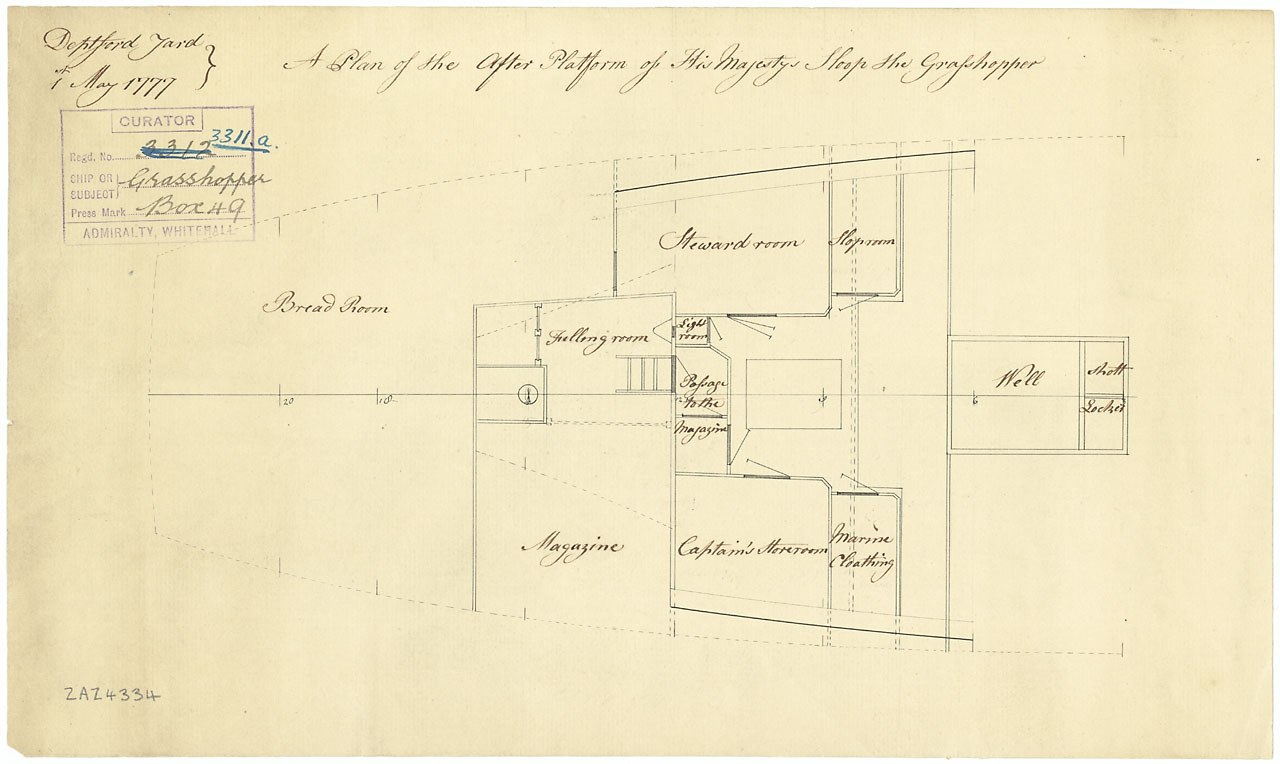 Deptford Yard
1st May 1777
A Plan of the After Platform of His Majestys Sloop the Grasshopper
CURATOR
Regd. No. 3312 3311.a.
SHIP OR SUBJECT Grasshopper
Press Mark Box 49
ADMIRALTY, WHITEHALL
Steward room
Sloproom
Bread Room
Filling room
Light
room
Passage
to the
Magazine
Well
Shott
Locker
20
18
6
Magazine
Captain's Storeroom
Marine
Cloathing
ZAZ4334